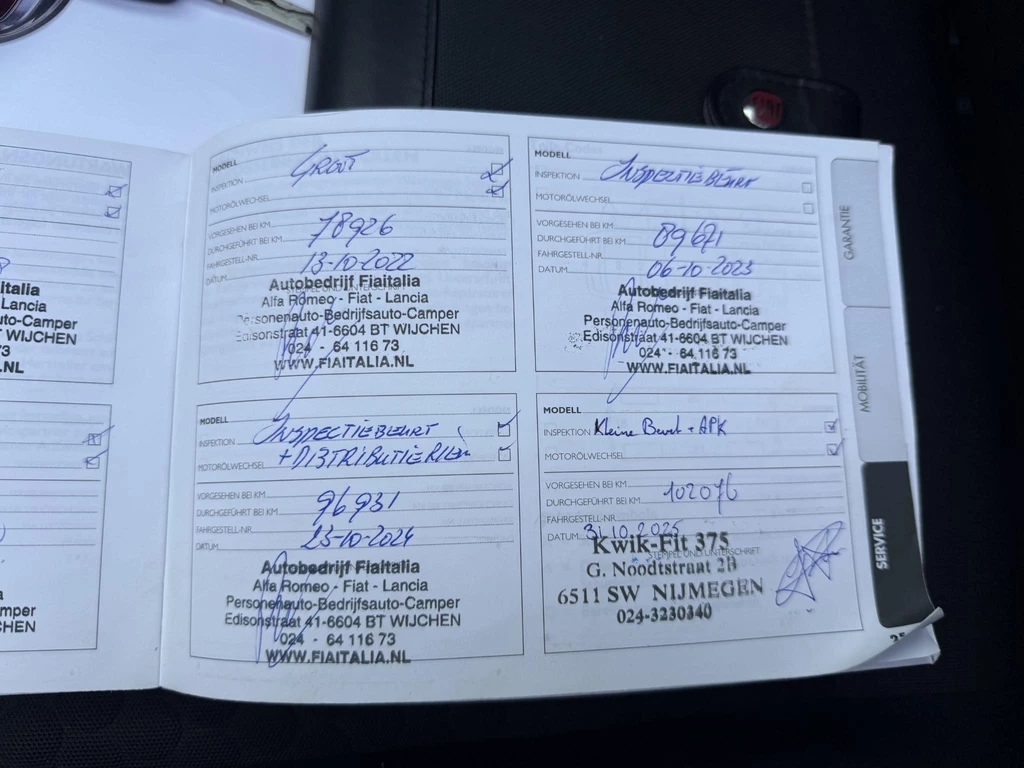 WARTUNGEN
italia
Lancia
uto-Camper
WIJCHEN
73
.NL
CHEN
MODELL
GROOT
INSPEKTION
MOTORÖLWECHSEL
VORGESEHEN BEI KM
78926
DURCHGEFÜHRT BEI KM
FAHRGESTELL-NR.
13-10-2022
DATUM
Autobedrijf Fiaitalia
Alfa Romeo - Fiat - Lancia
Personenauto-Bedrijfsauto-Camper
Edisonstraat 41-6604 BT WIJCHEN
024 - 64 116 73
WWW.FIAITALIA.NL
MODELL
INSPEKTION INSPECTIEBEURT
MOTORÖLWECHSEL
VORGESEHEN BEI KM
DURCHGEFÜHRT BEI KM 89671
FAHRGESTELL-NR.
DATUM 06-10-2023
Autobedrijf Fiaitalia
Alfa Romeo - Fiat - Lancia
Personenauto-Bedrijfsauto-Camper
Edisonstraat 41-6604 BT WIJCHEN
024 - 64 116 73
WWW.FIAITALIA.NL
MODELL
INSPEKTION INSPECTIEBEURT
MOTORÖLWECHSEL + DISTRIBUTIERIEM
VORGESEHEN BEI KM
DURCHGEFÜHRT BEI KM 96931
FAHRGESTELL-NR.
DATUM 23-10-2024
Autobedrijf Fiaitalia
Alfa Romeo - Fiat - Lancia
Personenauto-Bedrijfsauto-Camper
Edisonstraat 41-6604 BT WIJCHEN
024 - 64 116 73
WWW.FIAITALIA.NL
MODELL
INSPEKTION Kleine Beurt + APK
MOTORÖLWECHSEL
VORGESEHEN BEI KM
DURCHGEFÜHRT BEI KM 102076
FAHRGESTELL-NR.
DATUM 31 10 2025
STEMPEL UND UNTERSCHRIFT
Kwik-Fit 375
G. Noodtstraat 2B
6511 SW NIJMEGEN
024-3230340
GARANTIE
MOBILITÄT
SERVICE
25